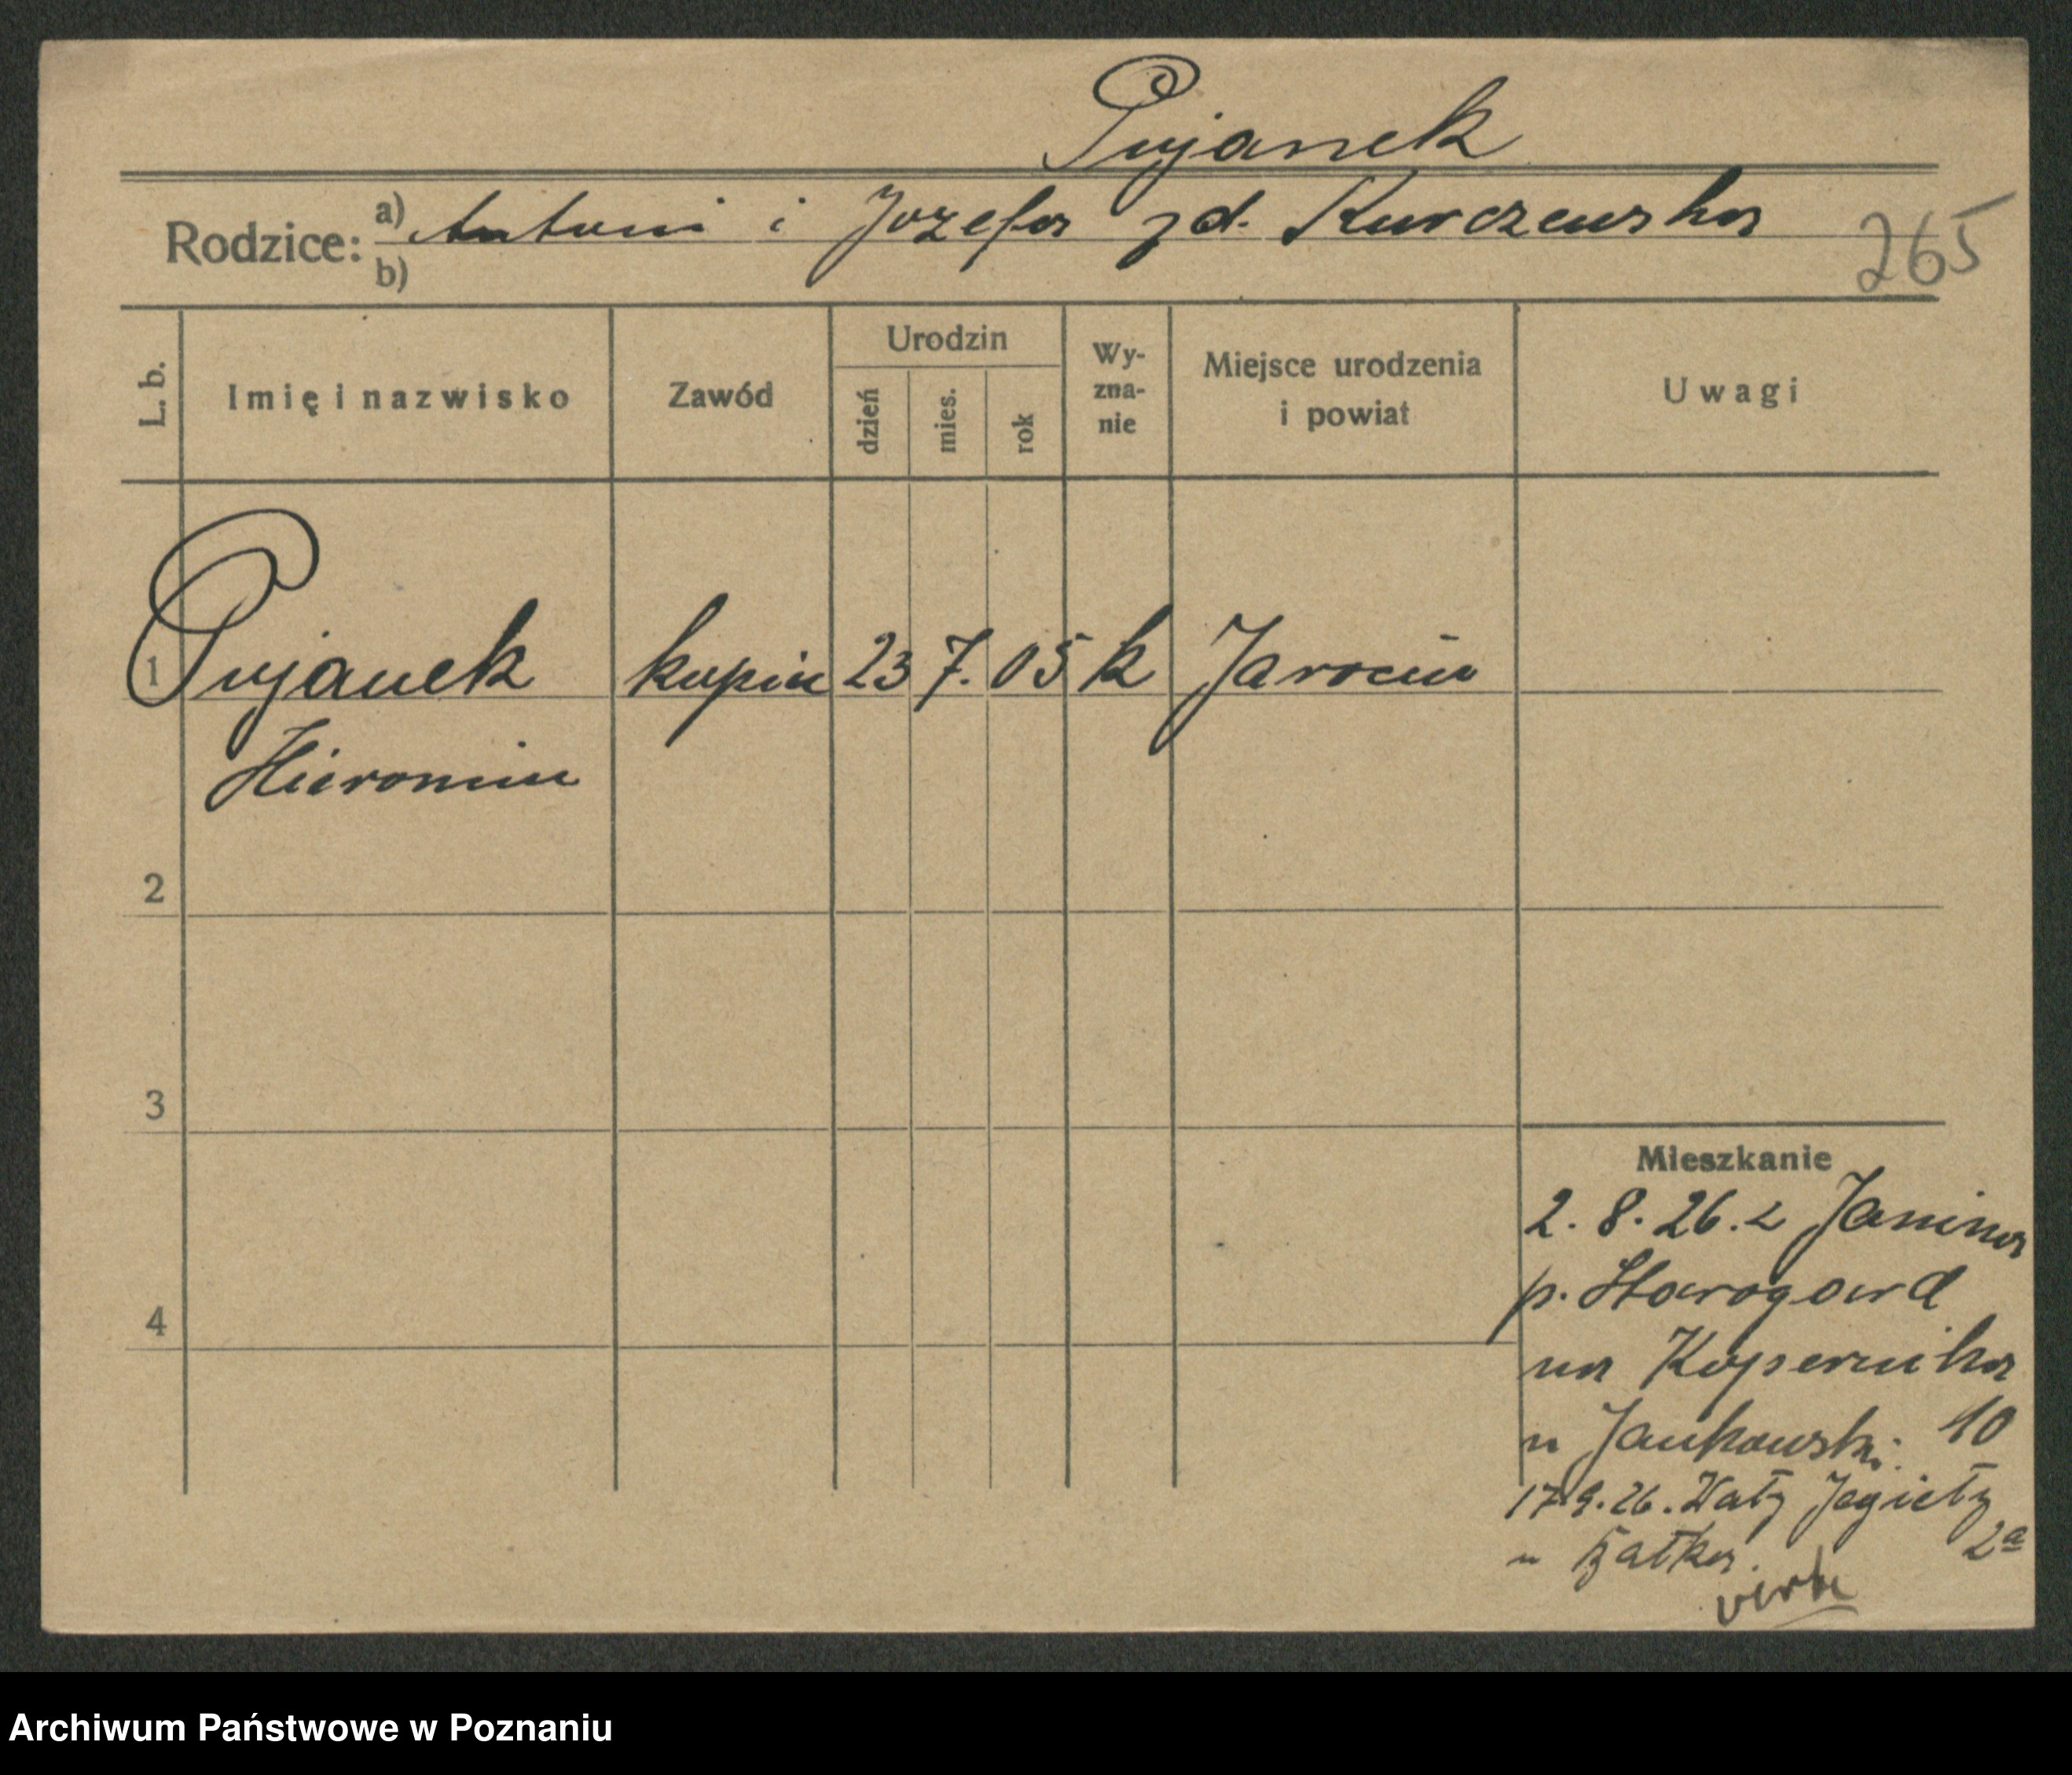 Pujanek
Rodzice: a) Antoni i Jozefa zd. Kurczewska
b)
265
L. b. Imię i nazwisko Zawód Urodzin dzień mies. rok Wyznanie Miejsce urodzenia i powiat Uwagi
1 Pujanek kupiec 23 7. 05 k Jarocin
Hieronim
2
3
4
Mieszkanie
2. 8. 26. z Janina
p. Starogard
na Kopernika
u Jankowski. 10
17.9.26. Wały Jagiełły
2a
u Bałka.
Archiwum Państwowe w Poznaniu